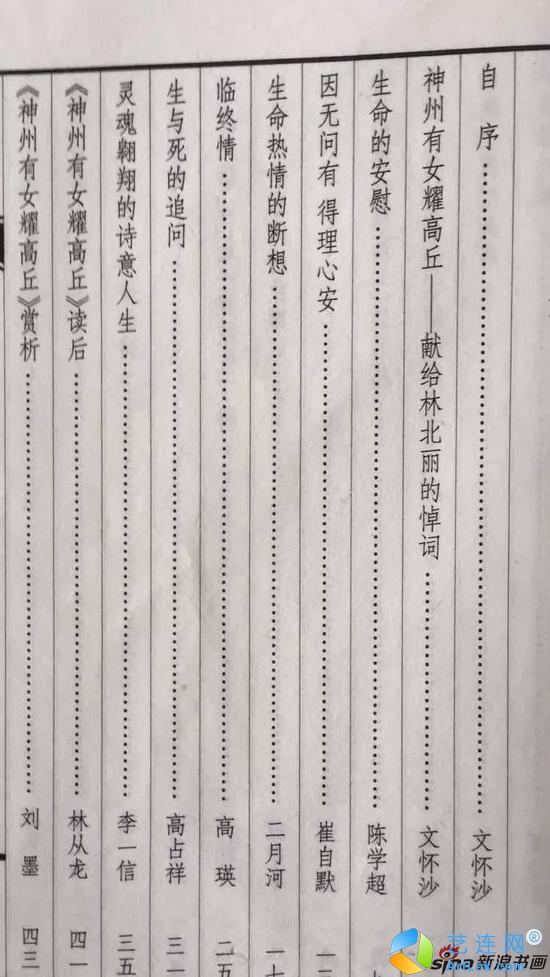 自序……文怀沙
神州有女耀高丘——献给林北丽的悼词……文怀沙
生命的安慰……陈学超
因无问有 得理心安……崔自默
生命热情的断想……二月河 一七
临终情……高瑛 二五
生与死的追问……高占祥 三一
灵魂翱翔的诗意人生……李一信 三五
《神州有女耀高丘》读后……林从龙 四一
《神州有女耀高丘》赏析……刘墨 四三
艺连网®
sina新浪书画